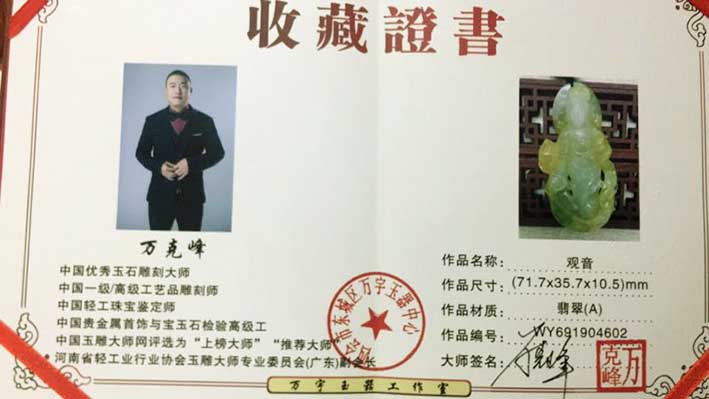 收藏證書
万克峰
中国优秀玉石雕刻大师
中国一级/高级工艺品雕刻师
中国轻工珠宝鉴定师
中国贵金属首饰与宝玉石检验高级工
中国玉雕大师网评选为“上榜大师”“推荐大师”
河南省轻工业行业协会玉雕大师专业委员会(广东)副会长
作品名称: 观音
作品尺寸: (71.7x35.7x10.5)mm
作品材质: 翡翠(A)
作品编号: WY691904602
大师签名: 万克峰
万克峰
市东城区万字玉器中心
万字玉器工作室